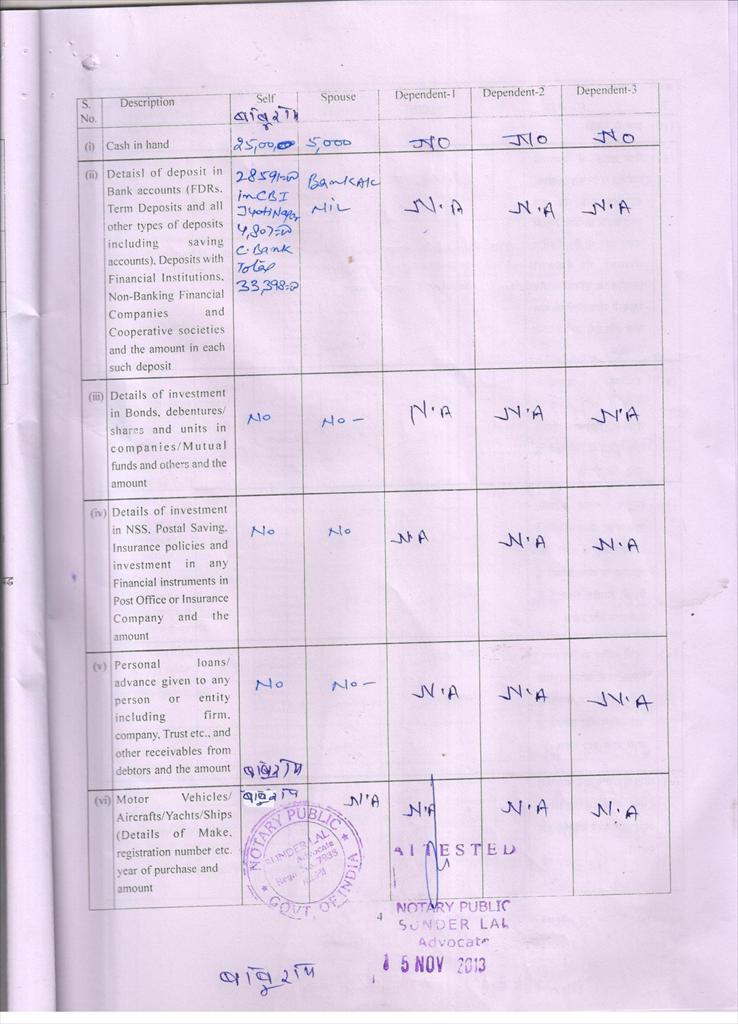 S. No. Description Self Spouse Dependent-1 Dependent-2 Dependent-3
बाबूराम
(i) Cash in hand 25,00 5,000 NO NO NO
(ii) Detaisl of deposit in
Bank accounts (FDRs,
Term Deposits and all
other types of deposits
including saving
accounts), Deposits with
Financial Institutions,
Non-Banking Financial
Companies and
Cooperative societies
and the amount in each
such deposit
28591=00
in CBI
Jyoti Nagar
4,807=00
C. Bank
Total
33,398=00
Bank A/c
NIL
N.A N.A N.A
(iii) Details of investment
in Bonds, debentures/
shares and units in
companies/Mutual
funds and others and the
amount
No No - N.A N.A N.A
(iv) Details of investment
in NSS, Postal Saving,
Insurance policies and
investment in any
Financial instruments in
Post Office or Insurance
Company and the
amount
No No N.A N.A N.A
(v) Personal loans/
advance given to any
person or entity
including firm,
company, Trust etc., and
other receivables from
debtors and the amount
No No - N.A N.A N.A
बाबूराम
(vi) Motor Vehicles/
Aircrafts/Yachts/Ships
(Details of Make,
registration number etc.
year of purchase and
amount
बाबूराम
N.A N.A N.A N.A
NOTARY PUBLIC
SUNDER LAL
Advocate
GOVT. OF INDIA
ATTESTED
4
NOTARY PUBLIC
SUNDER LAL
Advocate
15 NOV 2013
बाबूराम